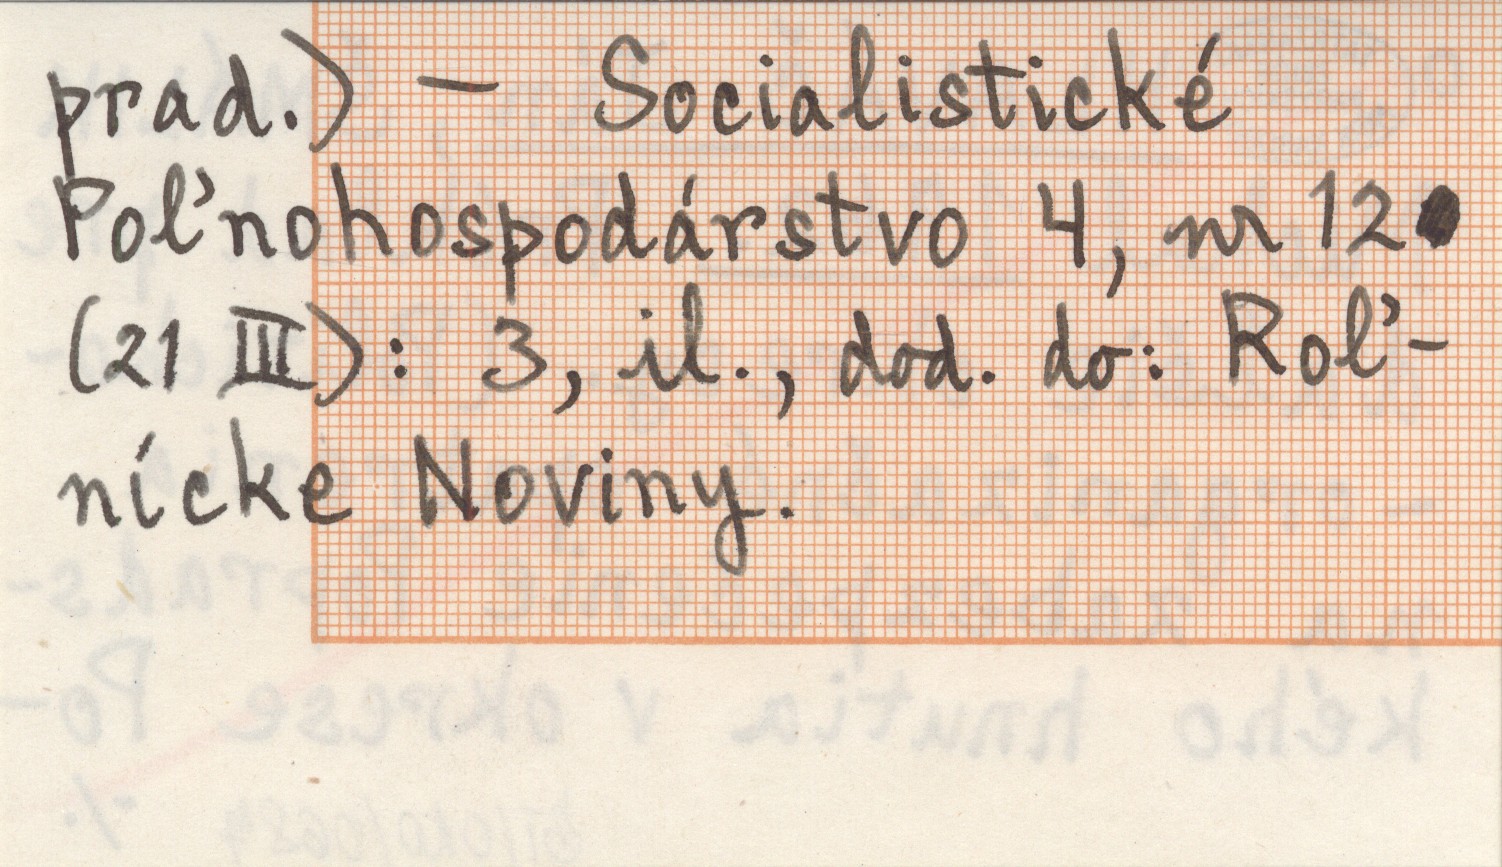 prad.) - Socialistické
Poľnohospodárstvo 4, nr 12
(21 III): 3, il., dod. do: Roľ-
nícke Noviny.